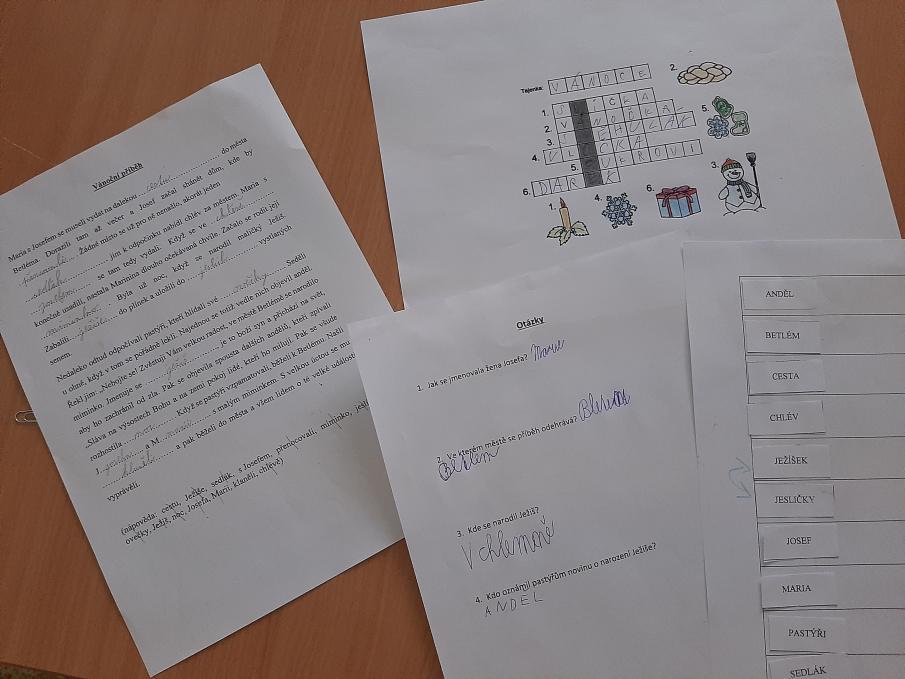 Vánoční příběh
Maria s Josefem se museli vydat na dalekou cestu do města
Betléma. Dorazili tam až večer a Josef začal shánět dům, kde by
přenocovali. Žádné místo se už pro ně nenašlo, akorát jeden
sedlák jim k odpočinku nabídl chlév za městem. Maria s
Josefem se tam tedy vydali. Když se ve chlévě
konečně usadili, nastala Mariina dlouho očekávaná chvíle. Začalo se rodit její
miminko. Byla už noc, když se narodil maličký Ježíš.
Zabalili do plínek a uložili do vystlaných
senem.
Nedaleko odtud odpočívali pastýři, kteří hlídali své ovečky. Seděli
u ohně, když v tom se pořádně lekli. Najednou se totiž vedle nich objevil anděl.
Řekl jim: „Nebojte se! Zvěstuji Vám velkou radost, ve městě Betlémě se narodilo
miminko. Jmenuje se je to boží syn a přichází na svět,
aby ho zachránil od zla. Pak se objevila spousta dalších andělů, kteří zpívali
„Sláva na výsostech Bohu a na zemi pokoj lidé, kteří ho milují. Pak se všude
rozhostila noc. Když se pastýři vzpamatovali, běželi k Betlému. Našli
J a M s malým miminkem. S velkou úctou se mu
a pak běželi do města a všem lidem o té velké události
vyprávěli.
(nápověda: cestu, Ježíše, sedlák, s Josefem, přenocovali, miminko,
ovečky, Ježíš, noc, Josefa, Marii, klaněli, chlévě)
Tajenka: VÁNOCE
1. SVÍČKA
2. VÁNOČKA
3. SNĚHULÁK
4. VLOČKA
5. CUKROVÍ
6. DÁREK
2.
5.
3.
1.
4.
6.
Otázky
1. Jak se jmenovala žena Josefa? Marie
2. Ve kterém městě se příběh odehrává?
Betlém
3. Kde se narodil Ježíš?
V chlemově
4. Kdo oznámil pastýřům novinu o narození Ježíše?
ANDEL
ANDĚL
BETLÉM
CESTA
CHLÉV
JEŽÍŠEK
JESLIČKY
JOSEF
MARIA
PASTÝŘI
SEDLÁK